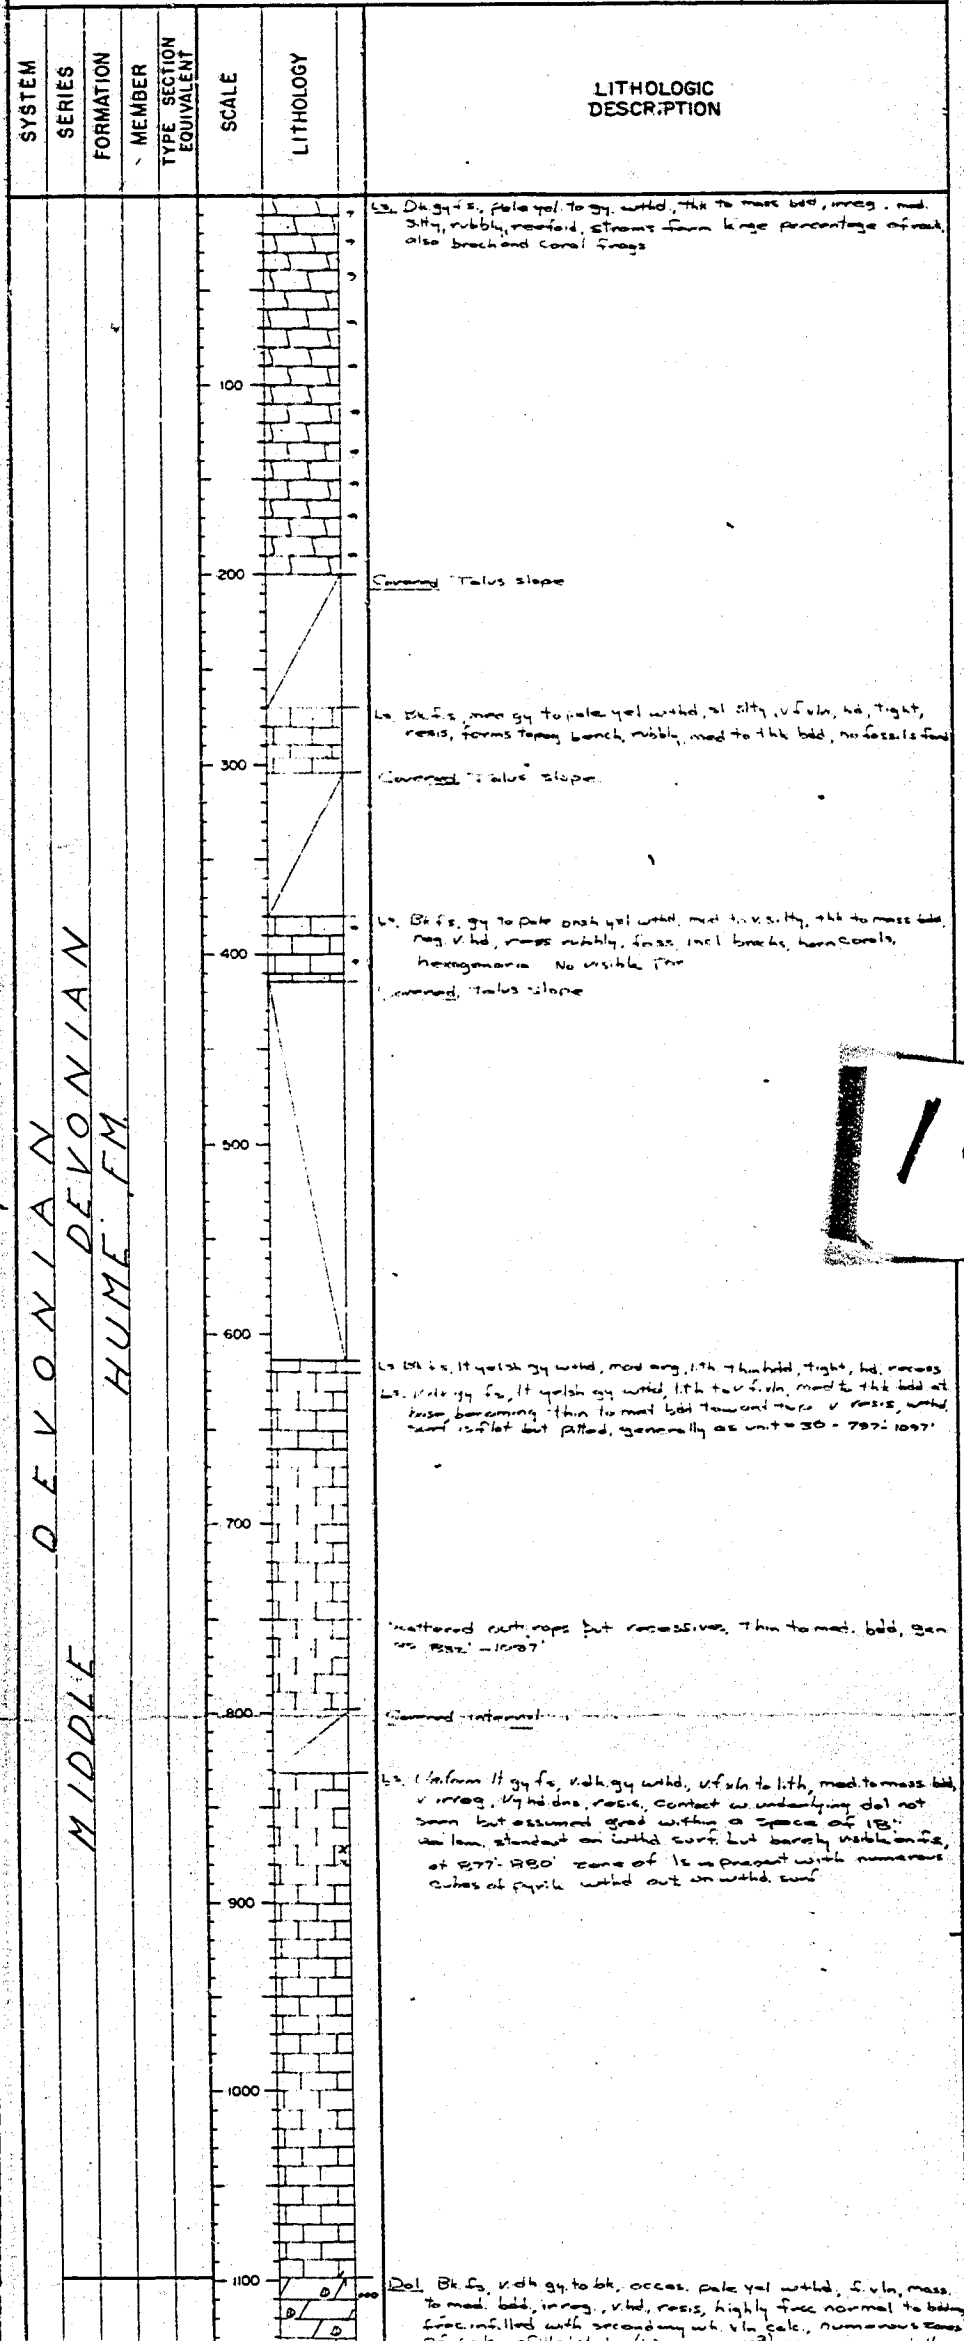 SYSTEM
SERIES
FORMATION
MEMBER
TYPE SECTION
EQUIVALENT
SCALE
LITHOLOGY
LITHOLOGIC
DESCRIPTION
DEVONIAN
MIDDLE DEVONIAN
HUME FM.
100
200
300
400
500
600
700
800
900
1000
1100
Ls. Dk. gy f.s., pale yel. to gy. wthd., thk to mass bdd, irreg., med.
silty, rubbly, reefoid, stroms form large percentage of rock,
also brach and coral frags
Covered Talus slope
Ls. Bk f.s, med gy to pale yel wthd, sl silty, v f xln, hd, tight,
resis, forms topog bench, rubbly, med to thk bdd, no fossils fand
Covered Talus slope
Ls. Bk f.s, gy to pale onsh yel wthd, med to v. silty, thk to mass bdd,
reg, v. hd, rubbly, foss incl brachs, horn corals,
hexagonaria No visible
Covered, Talus slope
Ls Bk f.s, lt yelsh gy wthd, mod arg, lith thin bdd, tight, hd, recess
Ls. gy fs, lt yelsh gy wthd, lith to v f. xln, med to thk bdd at
base, becoming thin to med bdd toward v resis, wthd,
surf is flat but pitted, generally as unit # 30 - 797'-1097'
Scattered outcrops but recessive, Thin to med. bdd, gen
as 832' - 1097'
Covered interval
Ls. Uniform lt gy fs, v. dk. gy wthd., v. f xln to lith, med. to mass bdd,
v irreg, hd, dns, resis, contact w. underlying dol not
seen but assumed grad within a space of 18"
lam. standout on wthd surf. but barely visible on fs,
at 877'-880' zone of ls is present with numerous
cubes of pyrite wthd out on wthd. surf
Dol Bk. fs, v. dk gy. to bk, occas. pale yel wthd, f. xln, mass.
to med. bdd, irreg., v. hd, resis, highly frac normal to bdding
frac. infilled with secondary wh. xln calc., numerous zones